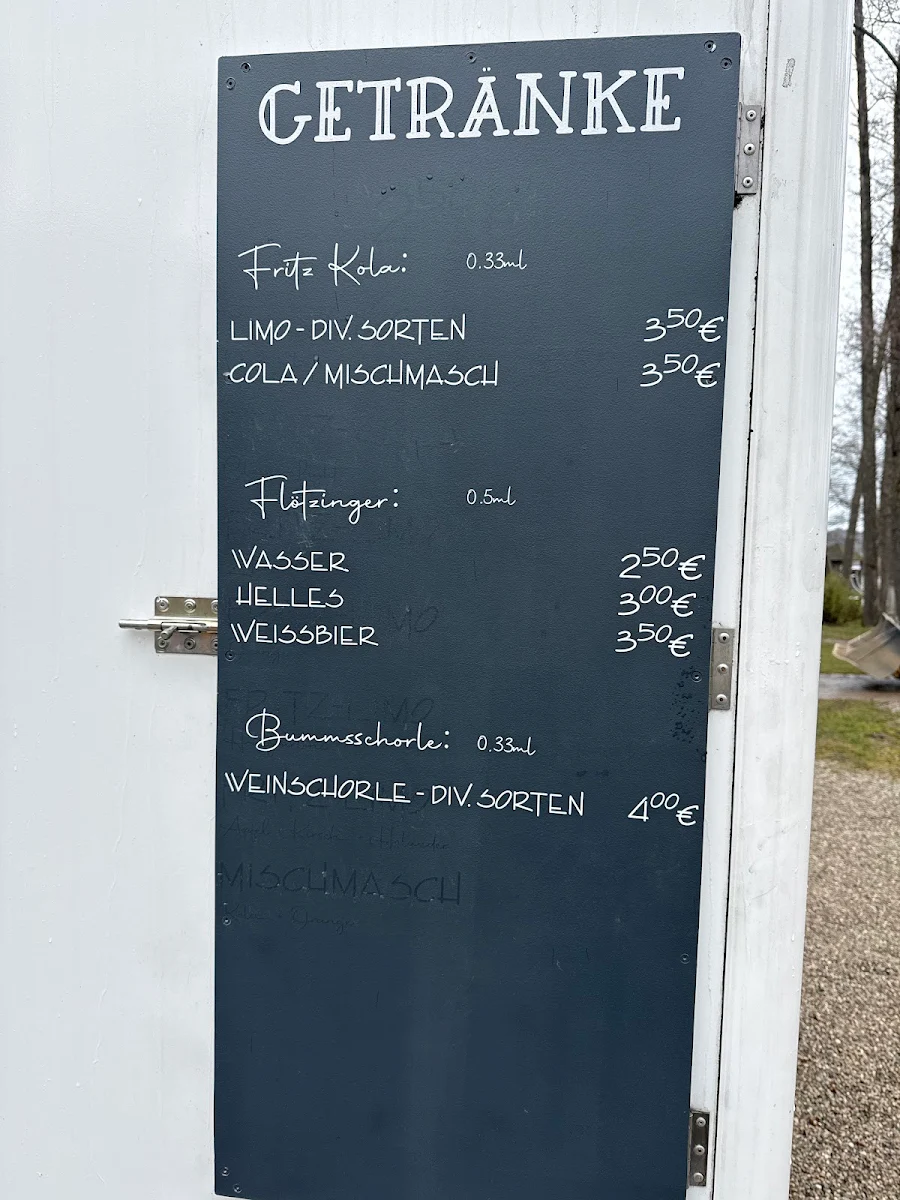 GETRÄNKE
Fritz Kola: 0.33ml
LIMO - DIV. SORTEN 3 50 €
COLA / MISCHMASCH 3 50 €
Flötzinger: 0.5ml
WASSER 2 50 €
HELLES 3 00 €
WEISSBIER 3 50 €
Bummsschorle: 0.33ml
WEINSCHORLE - DIV. SORTEN 4 00 €
MISCHMASCH